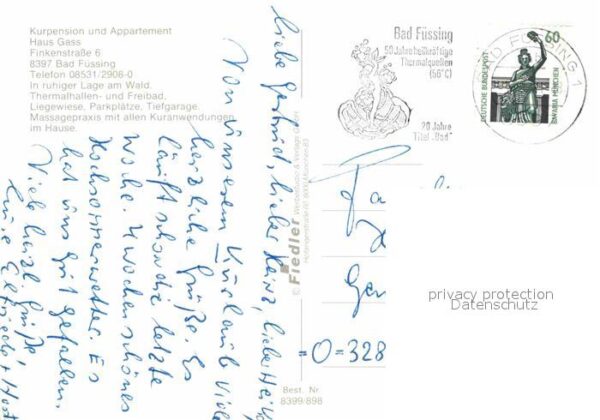 Kurpension und Appartement
Haus Gass
Finkenstraße 6
8397 Bad Füssing
Telefon 08531/2906-0
In ruhiger Lage am Wald.
Thermalhallen- und Freibad,
Liegewiese, Parkplätze, Tiefgarage.
Massagepraxis mit allen Kuranwendungen
im Hause.
Bad Füssing
50 Jahre heilkräftige
Thermalquellen
(56°C)
20 Jahre
Titel "Bad"
BAD FÜSSING 1
60
DEUTSCHE BUNDESPOST
BAVARIA MÜNCHEN
Liebe Gertrud, lieber Heinz, liebe
Von unserem Kurlaub viele
herzliche Grüße. Es
läuft schon die letzte
Woche. 4 Wochen schönes
Hochsommerwetter. Es
hat uns gut gefallen.
Viele herzl. Grüße
Eure Elfriede + Horst
© Fiedler
Fa
Ger
=O=328
Best. Nr.
8399/898
privacy protection
Datenschutz